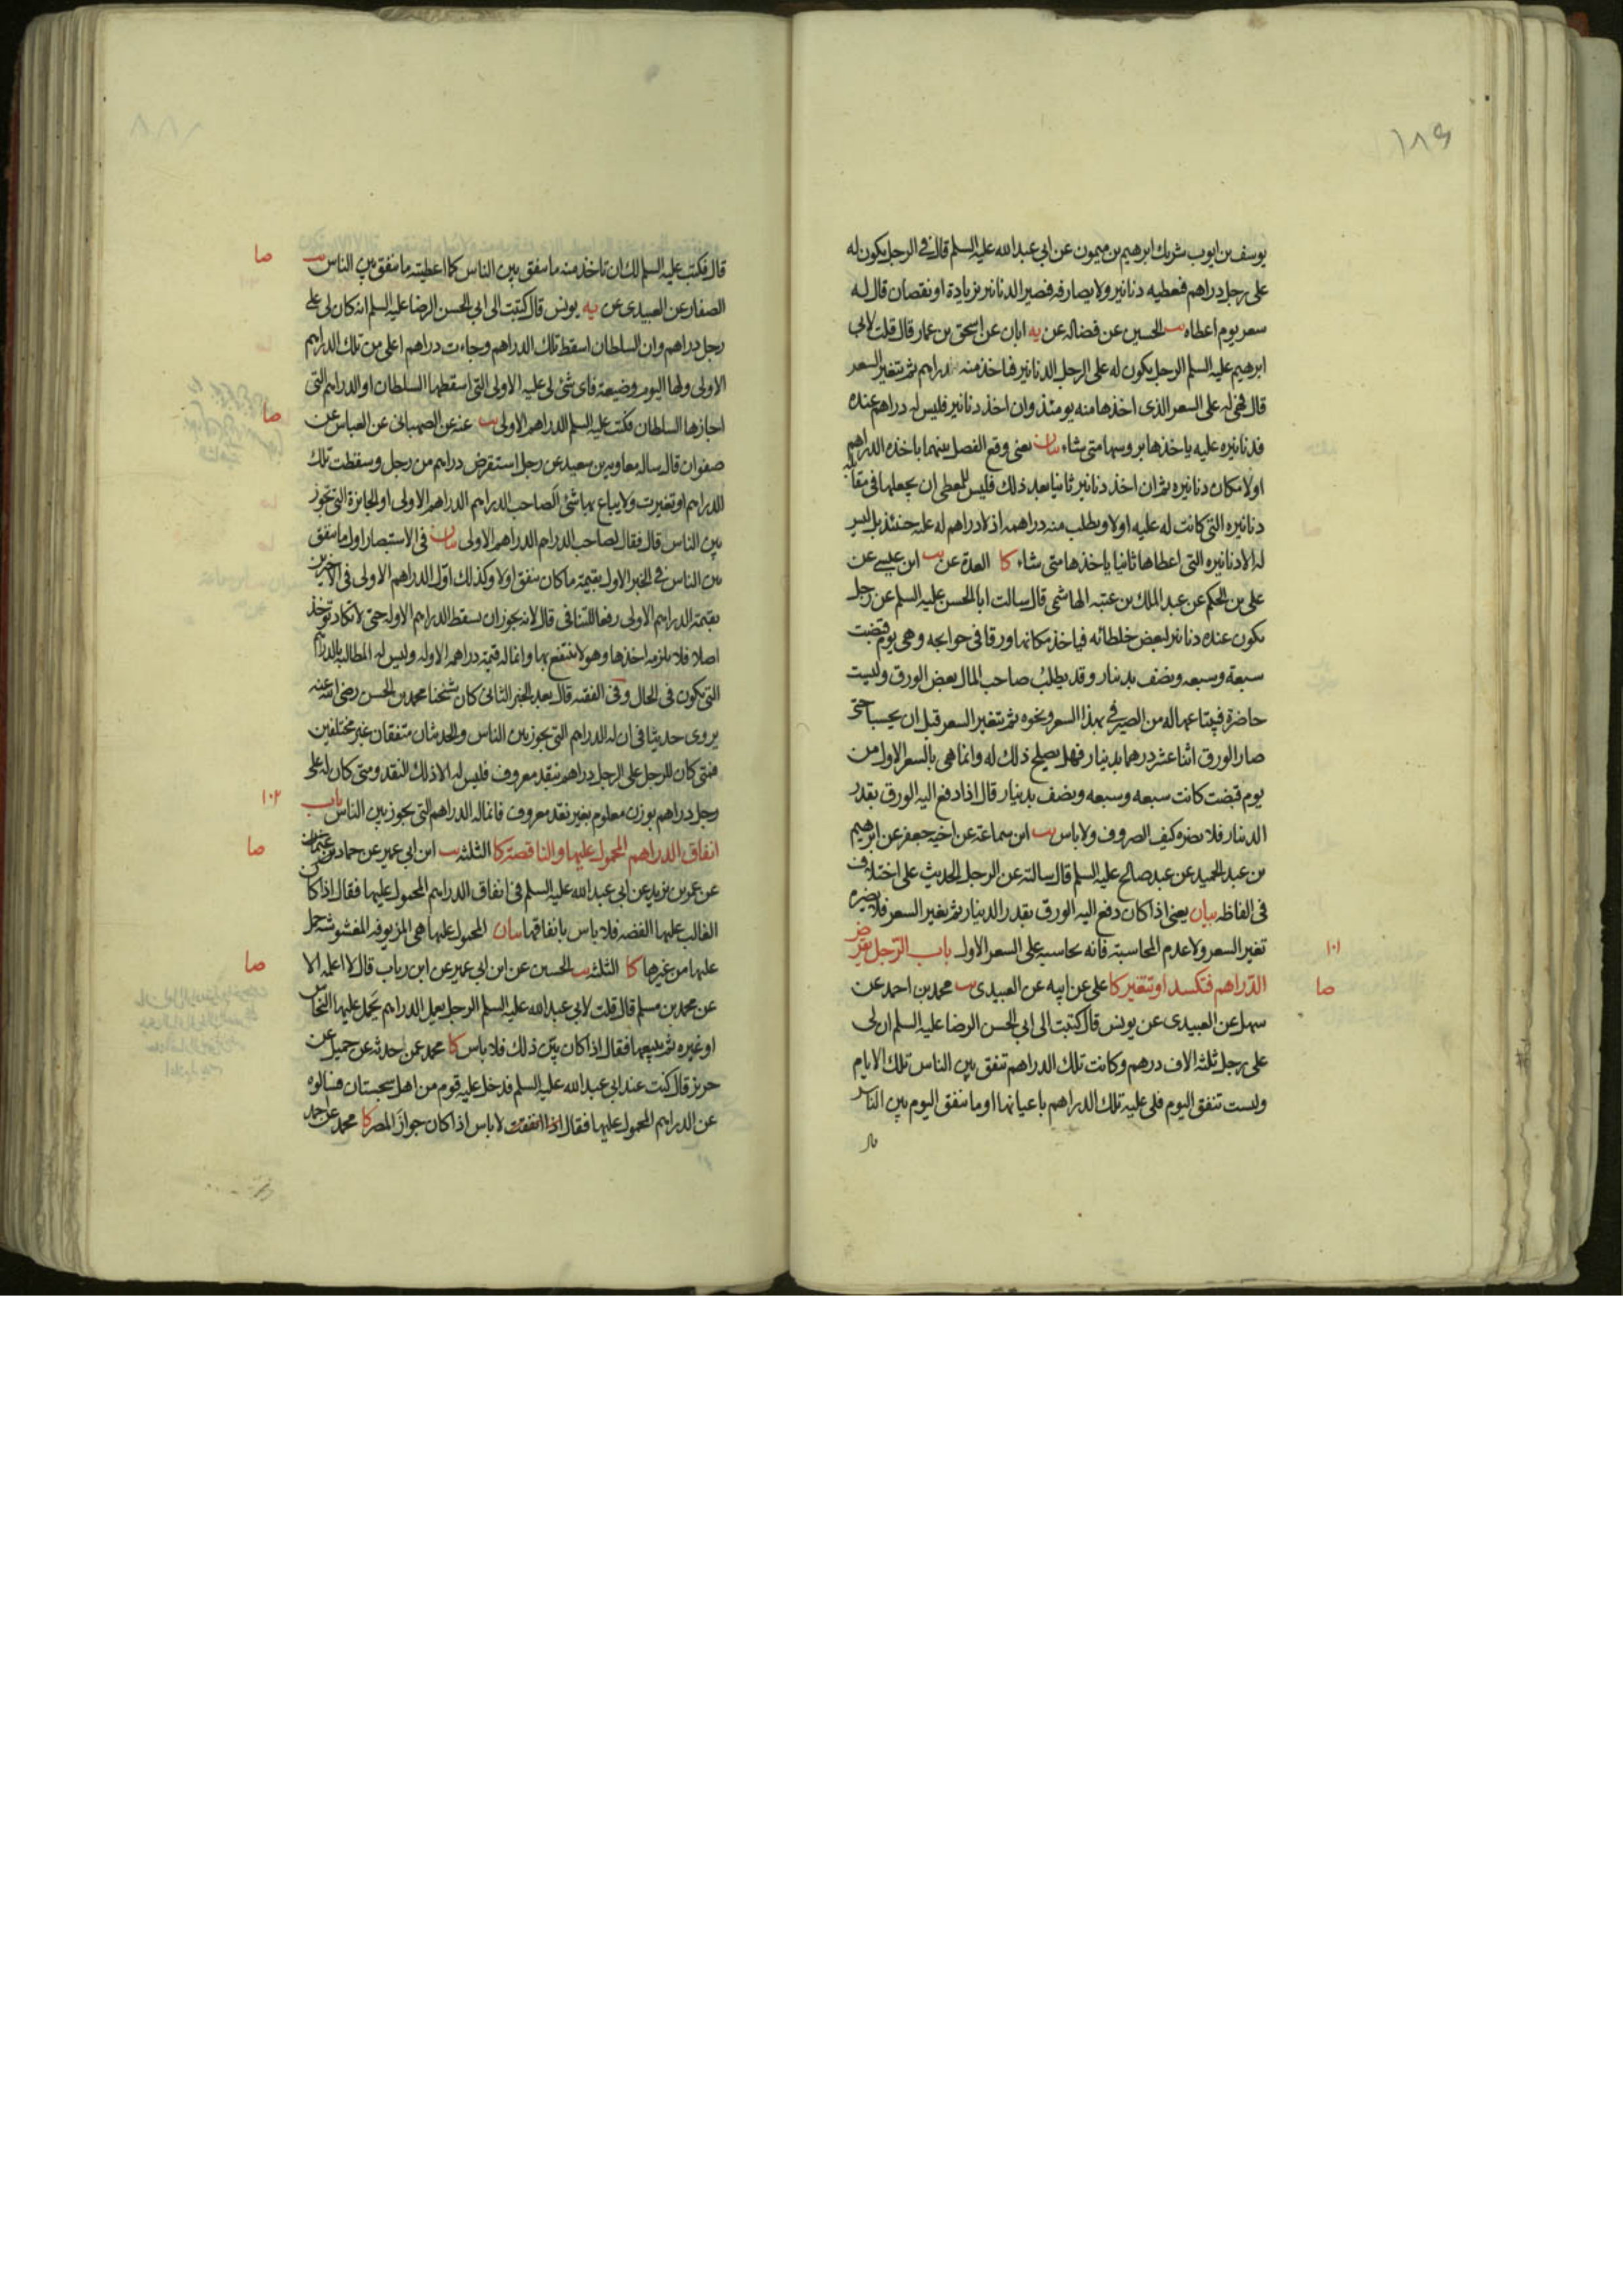 ١٨٩
يوسف بن ايوب شريك ابرهيم بن ميمون عن ابي عبدالله عليه السلم قال في الرجل يكون له
على رجل دراهم فيعطيه دنانير ولا يصارفه فيصير الدنانير بزيادة او نقصان قال له
سعر يوم اعطاه يب الحسين عن فضاله عن يه ابان عن اسحق بن عمار قال قلت لابي
ابرهيم عليه السلم الرجل يكون له على الرجل الدنانير فياخذ منه دراهم ثم يتغير السعر
قال فهي له على السعر الذى اخذها منه يومئذ وان اخذ دنانير فليس له دراهم عنده
فدنانيره عليه ياخذها برؤسها متى شاء بيان يعنى وقع الفصل بينهما باخذه الدراهم
اولا مكان دنانيره ثم ان اخذ دنانير ثانيا بعد ذلك فليس للمعطى ان يجعلها في مقابلة
دنانيره التى كانت له عليه اولا ويطلب منه دراهمه اذ لا دراهم له عليه حينئذ بل ليس
له الا دنانيره التى اعطاها ثانيا ياخذها متى شاء كا العدة عن يب ابن عيسى عن
على بن الحكم عن عبد الملك بن عتبه الهاشمى قال سالت ابا الحسن عليه السلم عن رجل
يكون عنده دنانير لبعض خلطائه فياخذ مكانها ورقا في حوايجه وهى يوم قبضت
سبعة وسبعه ونصف بدينار وقد يطلب صاحب المال بعض الورق وليست
حاضرة فيبتاعها له من الصيرفي بهذا السعر ونحوه ثم يتغير السعر قبل ان يحتسبا حتى
صار الورق اثنا عشر درهما بدينار فهل يصلح ذلك له وانما هى بالسعر الاول من
يوم قبضت كانت سبعه وسبعه ونصف بدينار قال اذا دفع اليه الورق بقدر
الدينار فلا يضره كيف الصروف ولا باس يب ابن سماعة عن اخيه جعفر عن ابرهيم
بن عبد الحميد عن عبد صالح عليه السلم قال سالته عن الرجل الحديث على اختلاف
في الفاظه بيان يعنى اذا كان دفع اليه الورق بقدر الدينار ثم يغير السعر فلا يضره
تغير السعر ولا عدم المحاسبة فانه يحاسبه على السعر الاول باب الرجل يقرض
١٠١
الدراهم فتكسد او تتغير كا على عن ابيه عن العبيدى يب محمد بن احمد عن
صا
سهل عن العبيدى عن يونس قال كتبت الى ابي الحسن الرضا عليه السلم ان لى
على رجل ثلثة الاف درهم وكانت تلك الدراهم تنفق بين الناس تلك الايام
وليست تنفق اليوم فلى عليه تلك الدراهم باعيانها او ما ينفق اليوم بين الناس
قال
قال فكتب عليه السلم لك ان تاخذ منه ما ينفق بين الناس كما اعطيته ما ينفق بين الناس يب
صا
الصفار عن العبيدى عن يه يونس قال كتبت الى ابي الحسن الرضا عليه السلم انه كان لى على
رجل دراهم وان السلطان اسقط تلك الدراهم وجاءت دراهم اعلى من تلك الدراهم
الاولى ولها اليوم وضيعة فاى شئ لى عليه الاولى التى اسقطها السلطان او الدراهم التى
اجازها السلطان فكتب عليه السلم الدراهم الاولى يب عنه عن الصهبانى عن العباس عن
صا
صفوان قال ساله معاويه بن سعيد عن رجل استقرض دراهم من رجل وسقطت تلك
الدراهم او تغيرت ولا يباع بها شئ الصاحب الدراهم الدراهم الاولى او الجايزة التى تجوز
بين الناس قال فقال لصاحب الدراهم الدراهم الاولى بيان في الاستبصار اول ما ينفق
بين الناس في الخبر الاول بقيمة ما كان ينفق اولا وكذلك اول الدراهم الاولى في الاخيرين
بقيمة الدراهم الاولى رفعا للتنافى قال لانه يجوز ان يسقط الدراهم الاولة حتى لا تكاد تؤخذ
اصلا فلا يلزمه اخذها وهو لا ينتفع بها وانما له قيمة دراهمه الاولة وليس له المطالبة بالدراهم
التى يكون في الحال وفي الفقيه قال بعد الخبر الثانى كان شيخنا محمد بن الحسن رضى الله عنه
يروى حديثا في ان له الدراهم التى يجوز بين الناس والحديثان متفقان غير مختلفين
فمتى كان للرجل على الرجل دراهم بنقد معروف فليس له الا ذلك النقد ومتى كان له على
رجل دراهم بوزن معلوم بغير نقد معروف فانما له الدراهم التى يجوز بين الناس باب
١٠٢
انفاق الدراهم المحمول عليها والناقصة كا الثلثة يب ابن ابي عمير عن حماد بن عثمان
صا
عن عمر بن يزيد عن ابي عبدالله عليه السلم في انفاق الدراهم المحمول عليها فقال اذا كان
الغالب عليها الفضه فلا باس بانفاقها بيان المحمول عليها هى المزيوفه المغشوشه حمل
عليها من غيرها كا الثلثه يب الحسين عن ابن ابي عمير عن ابن رياب قال لا اعلمه الا
صا
عن محمد بن مسلم قال قلت لابي عبدالله عليه السلم الرجل يعمل الدراهم يحمل عليها النحاس
او غيره ثم يبيعها فقال اذا كان بين ذلك فلا باس كا محمد عمن حدثه عن جميل عن
حريز قال كنت عند ابي عبدالله عليه السلم فدخل عليه قوم من اهل سجستان فسالوه
عن الدراهم المحمول عليها فقال اذا انفقت لا باس اذا كان جواز المصر كا محمد عن احمد